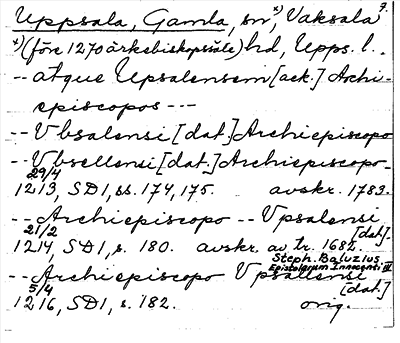 Uppsala, Gamla, sn x), Vaksala 7.
x) (före 1270 ärkebiskopssäte) hd, Upps. l.
-- atque Upsalensem [ack.] Archi-
episcopos ---
-- Vbsalensi [dat.] Archiepiscopo
-- Vbsellensi [dat.] Archiepiscopo -
29/4
1213, SD1, ss. 174, 175. avskr. 1783.
-- Archiepiscopo -- Vpsalensi
21/2 [dat].
1214, SD1, s. 180. avskr. av tr. 1682.
Steph. Baluzius,
Epistolarum Innocenti III
-- Archiepiscopo Vpsallensi
5/4 [dat.]
1216, SD1, s. 182. orig.